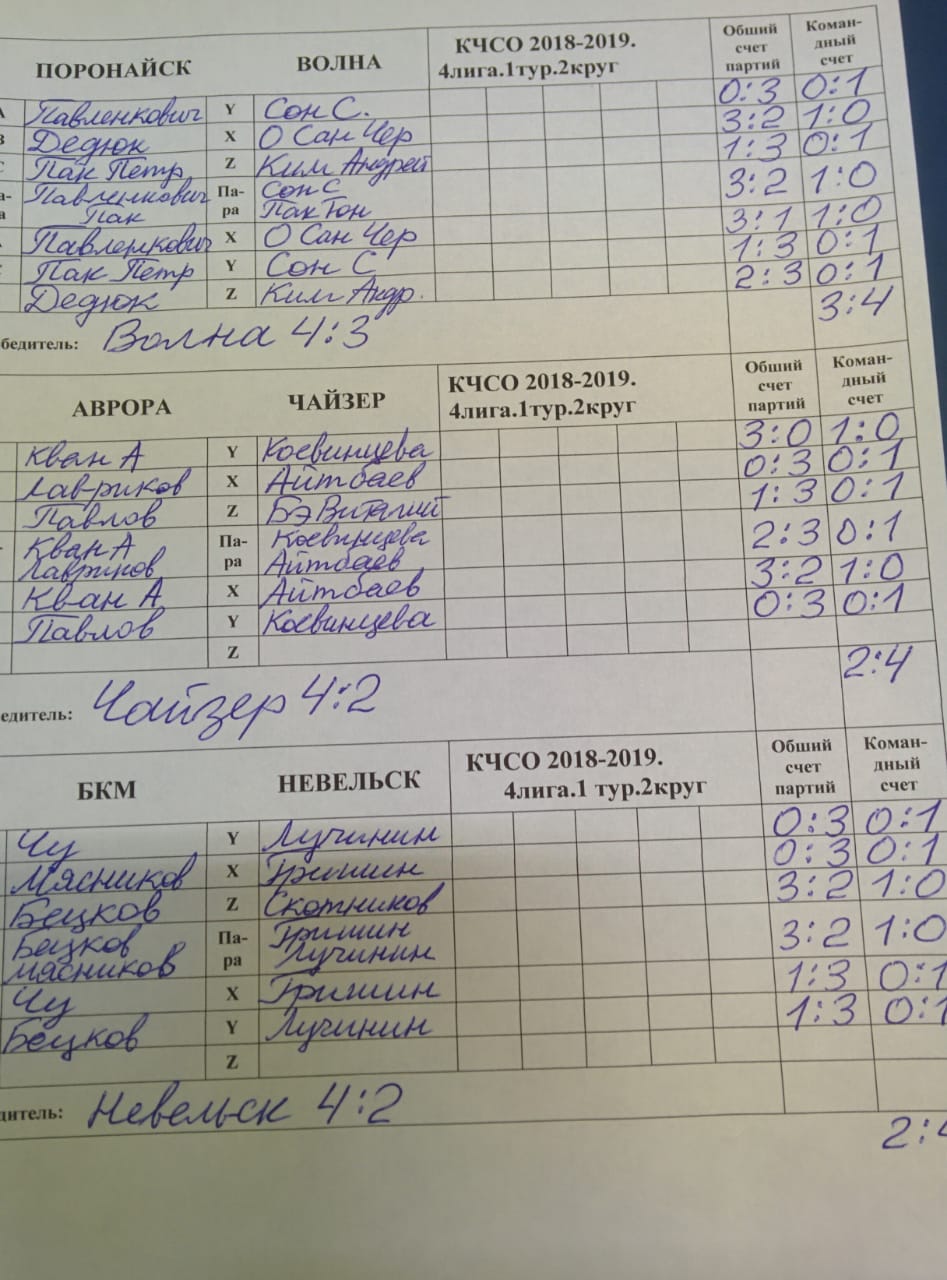 ПОРОНАЙСК ВОЛНА КЧСО 2018-2019. 4лига.1тур.2круг Общий счет партий Коман-дный счет
Павленкович Y Сон С. 0:3 0:1
В Дедюк X О Сан Чер 3:2 1:0
Пак Петр Z Ким Андрей 1:3 0:1
Павленкович Пак Па-ра Сон С Пак Тон 3:2 1:0
Павленкович X О Сан Чер 3:1 1:0
Пак Петр Y Сон С 1:3 0:1
Дедюк Z Ким Андр. 2:3 0:1
3:4
бедитель: Волна 4:3
АВРОРА ЧАЙЗЕР КЧСО 2018-2019. 4лига.1тур.2круг Общий счет партий Коман-дный счет
Кван А Y Коевинцева 3:0 1:0
Лавриков X Айтбаев 0:3 0:1
Павлов Z Бэ Виталий 1:3 0:1
Кван А Лавриков Па-ра Коевинцева Айтбаев 2:3 0:1
Кван А X Айтбаев 3:2 1:0
Павлов Y Коевинцева 0:3 0:1
Z
2:4
едитель: Чайзер 4:2
БКМ НЕВЕЛЬСК КЧСО 2018-2019. 4лига.1 тур.2круг Общий счет партий Коман-дный счет
Чу Y Лучинин 0:3 0:1
Мясников X Гришин 0:3 0:1
Бецков Z Скотников 3:2 1:0
Бецков мясников Па-ра Гришин Лучинин 3:2 1:0
Чу X Гришин 1:3 0:1
Бецков Y Лучинин 1:3 0:1
Z
дитель: Невельск 4:2
2:4